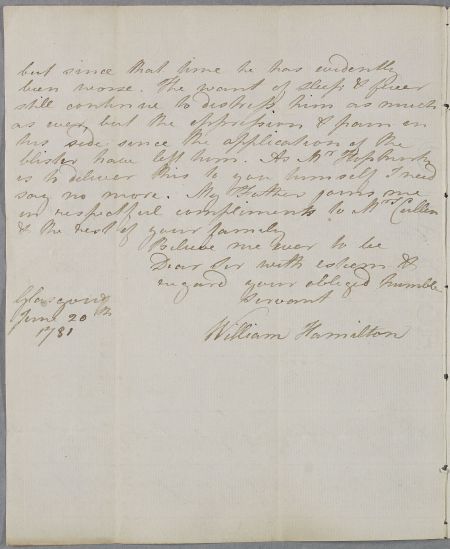 but since that time he has evidently
been worse. The want of sleep & fever
still continue to distress him as much
as ever but the oppression & pain in
his side since the application of the
blister have left him. As Mr Hopkirk
is to deliver this to you himself I need
say no more. My Father joins me
in respectful compliments to Mrs Cullen
& the rest of your family
Believe me ever to be
Dear Sir with esteem &
regard your obliged humble
Servant
William Hamilton
Glasgow
June 20th
1781